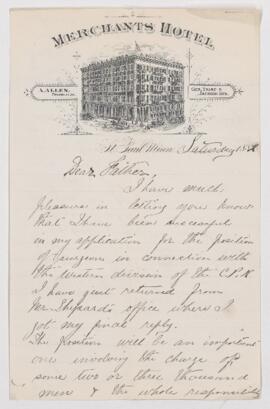 MERCHANTS HOTEL
A. ALLEN,
COR. THIRD &
JACKSON STS.
St. Paul, Minn. Saturday 188
Dear Father
I have much
pleasure in letting you know
that I have been successful
in my application for the position
of Surgeon in connection with
the Western division of the C.P.R
I have just returned from
Mr Shepard's office where I
got my final reply.
The position will be an important
one involving the charge of
some two or three thousand
men & the whole responsibility